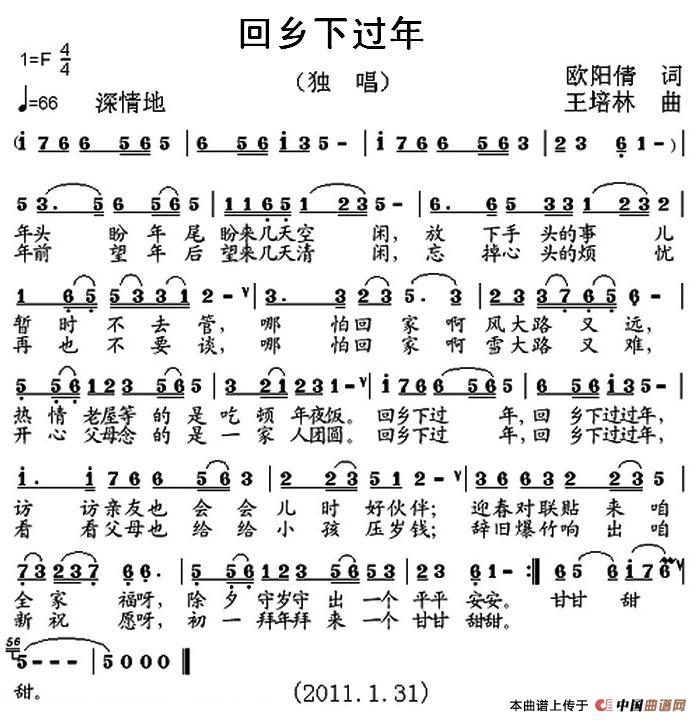 回乡下过年
1=F 4/4
（独 唱）
欧阳倩 词
♩=66 深情地
王培林 曲
(i 7 6 6 5 6 5 | 6 5 6 i 3 5 - | i 7 6 6 5 6 3 | 2 3 6 1 - )|
5 3. 5 6 5 6 5 | 1 1 6 5 1 2 3 5 - | 6. 6 5 5 3 3 2 3 2 |
年头 盼 年 尾 盼来几天空 闲，放 下手 头的事 儿
年前 望 年 后 望来几天清 闲，忘 掉心 头的烦 忧
1 6 5 5 3 3 1 2 - ∨ | 3. 3 2 2 3 5. 3 | 2 2 3 3 7 6 5 6 - |
暂 时 不 去 管，哪 怕回 家 啊 风大路 又 远，
再 也 不 要 谈，哪 怕回 家 啊 雪大路 又 难，
5 5 6 1 2 3 5 6 5 | 3 2 1 2 3 1 ∨ | i 7 6 6 6 5 6 5 | 6 5 6 i 3 5 - |
热 情 老屋等 的 是 吃 顿 年夜饭。回乡下过 年，回 乡下过过年，
开 心 父母念 的 是 一 家 人团圆。回乡下过 年，回 乡下过过年，
i. i 7 6 6 5 6 3 | 2 2 2 3 5 1 2 - ∨ | 3 6 6 6 3 2 3 5 |
访 访亲友也 会 会 儿 时 好伙伴；迎春对联贴 来 咱
看 看父母也 给 给 小 孩 压岁钱；辞旧爆竹响 出 咱
7 3 2 3 7 6 6. | 5 5 6 1 2 6 5 3 | 2 2 6 1 - :‖ 6 5 5 6 i 7 6 ∨ |
全 家 福呀，除 夕 守岁守 出 一个 平平 安安。甘甘 甜
新 祝 愿呀，初 一 拜年拜 来 一个 甘甘 甜甜。
56 5 - - - | 5 0 0 0 ‖
甜。
(2011.1.31)
本曲谱上传于 中国曲谱网